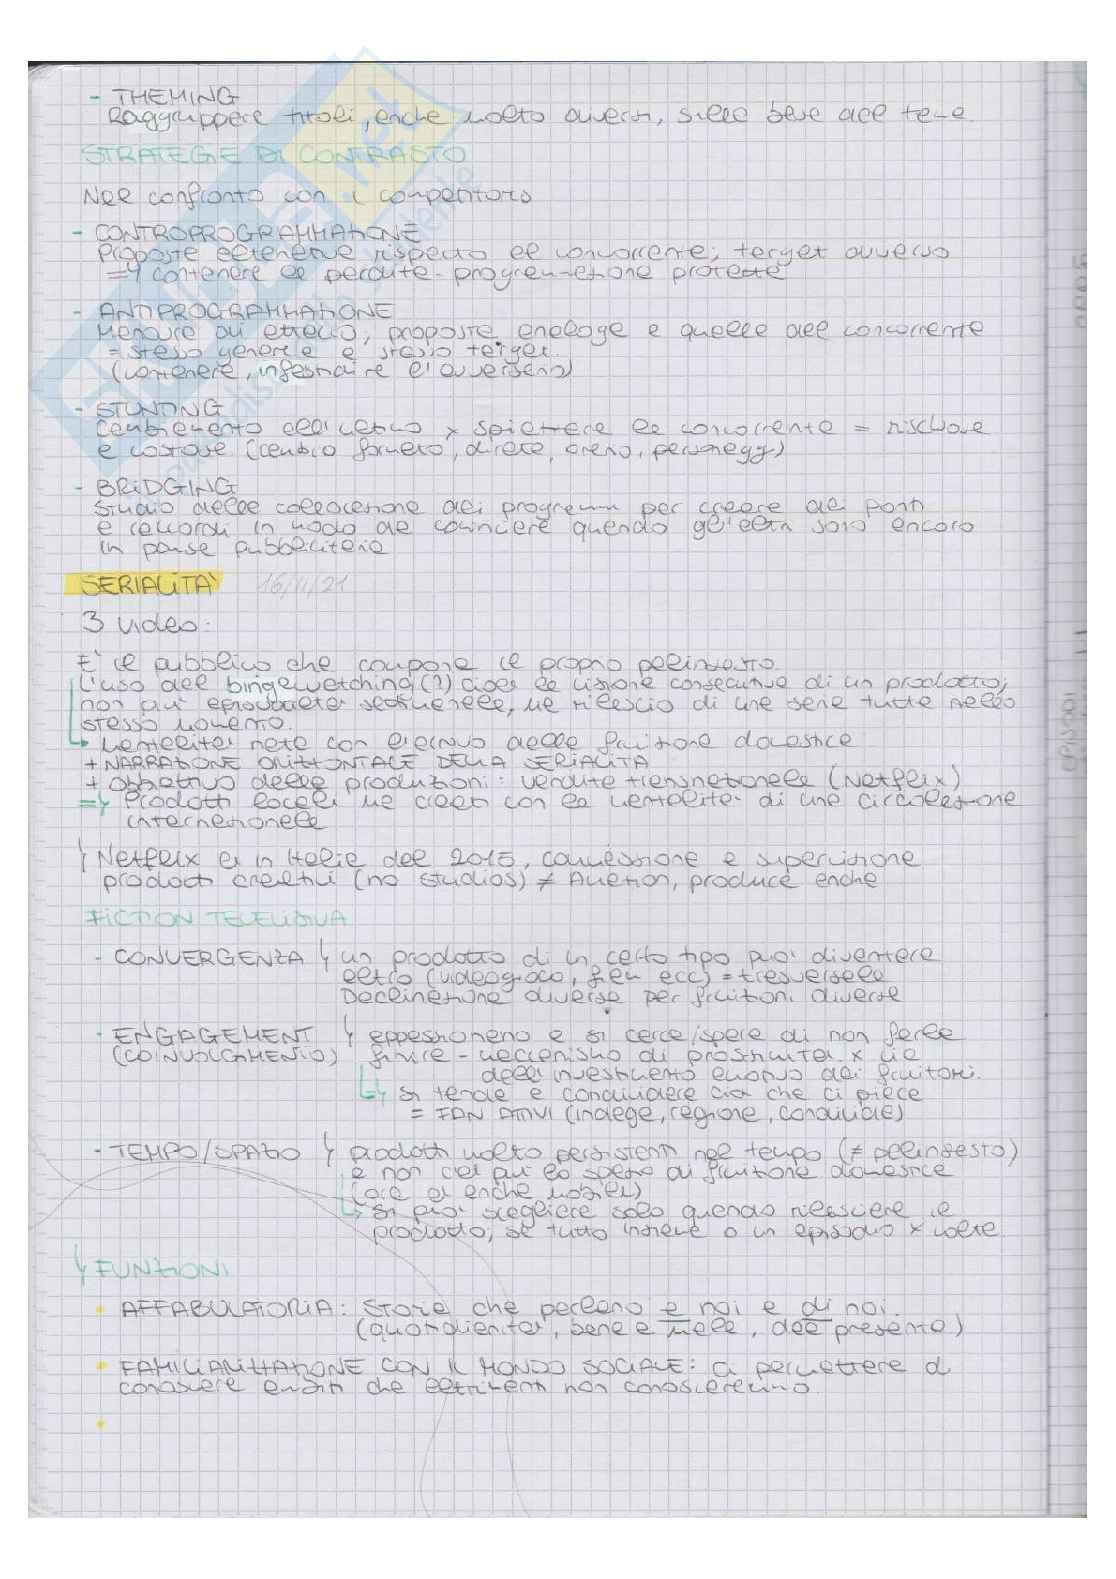 - THEMING
Raggruppare titoli, anche molto diversi, sulla base del tema.
STRATEGIE DI CONTRASTO
Nel confronto con i competitors
- CONTROPROGRAMMAZIONE
Proposta alternativa rispetto al concorrente; target diverso
=> contenere le perdite - programmazione protetta
- ANTIPROGRAMMAZIONE
Manovre di attacco, proposte analoghe a quelle del concorrente
= stesso genere e stesso target.
(contenere, infastidire l'avversario)
- STUNTING
Cambiamento dell'ultimo x spiazzare la concorrente = rischiose
e costose (cambio formato, durata, orario, personaggi)
- BRIDGING
Studio della collocazione dei programmi per creare dei ponti
e raccordi in modo da cominciare quando gli altri sono ancora
in pausa pubblicitaria
SERIALITÀ 16/11/21
3 video:
E' il pubblico che compone il proprio palinsesto.
L'uso del bingewatching (?) cioè la visione consecutiva di un prodotto,
non più appuntamento settimanale, ma rilascio di una serie tutta nello
stesso momento.
↳ mentalità nata con l'arrivo della fruizione domestica
+ NARRAZIONE ORIZZONTALE DELLA SERIALITÀ
+ obiettivo delle produzioni: vendita transnazionale (Netflix)
=> Prodotti locali ma creati con la mentalità di una circolazione
internazionale
↳ Netflix è in Italia dal 2015, commissione e supervisione
prodotti creativi (no studios) ≠ Amazon, produce anche
FICTION TELEVISIVA
- CONVERGENZA ↳ un prodotto di un certo tipo può diventare
altro (videogioco, film ecc) = trasversale
Declinazione diversa per fruitori diversi
- ENGAGEMENT ↳ appassionano e si cerca/spera di non farle
(COINVOLGIMENTO) finire - meccanismo di prossimità x via
dell'investimento emotivo dei fruitori.
↳ si tende a condividere ciò che ci piace
= FAN ATTIVI (indaga, reagisce, condivide)
- TEMPO/SPAZIO ↳ prodotti molto persistenti nel tempo (≠ palinsesto)
e non c'è più lo spazio di fruizione domestica
(ora è anche mobile)
↳ si può scegliere solo quando rilasciare il
prodotto, se tutto insieme o un episodio x volta
↳ FUNZIONI
• AFFABULATORIA: Storie che parlano a noi e di noi.
(quotidianità, bene e male, del presente)
• FAMILIARIZZAZIONE CON IL MONDO SOCIALE: ci permettere di
conoscere ambiti che altrimenti non conosceremmo.
•